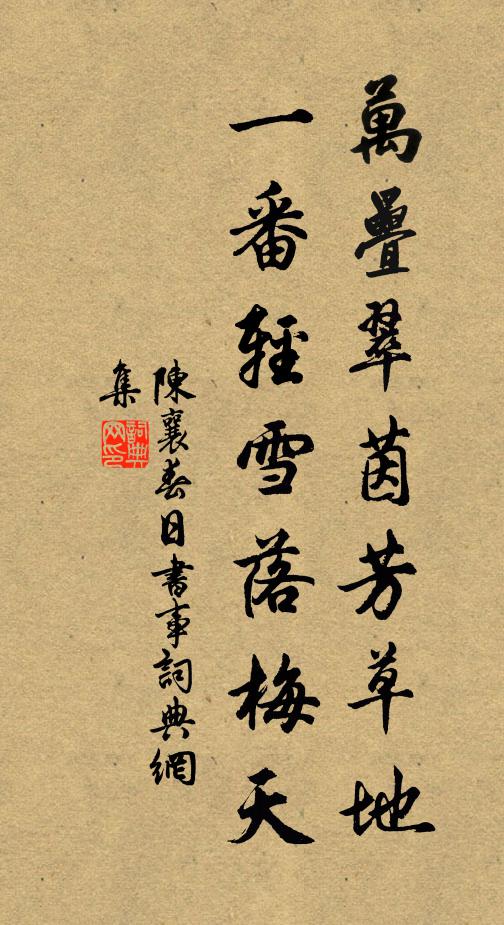 萬疊翠茵芳草地
一番輕雪落梅天
陳襄春日書事詞典網
集
詞典网印